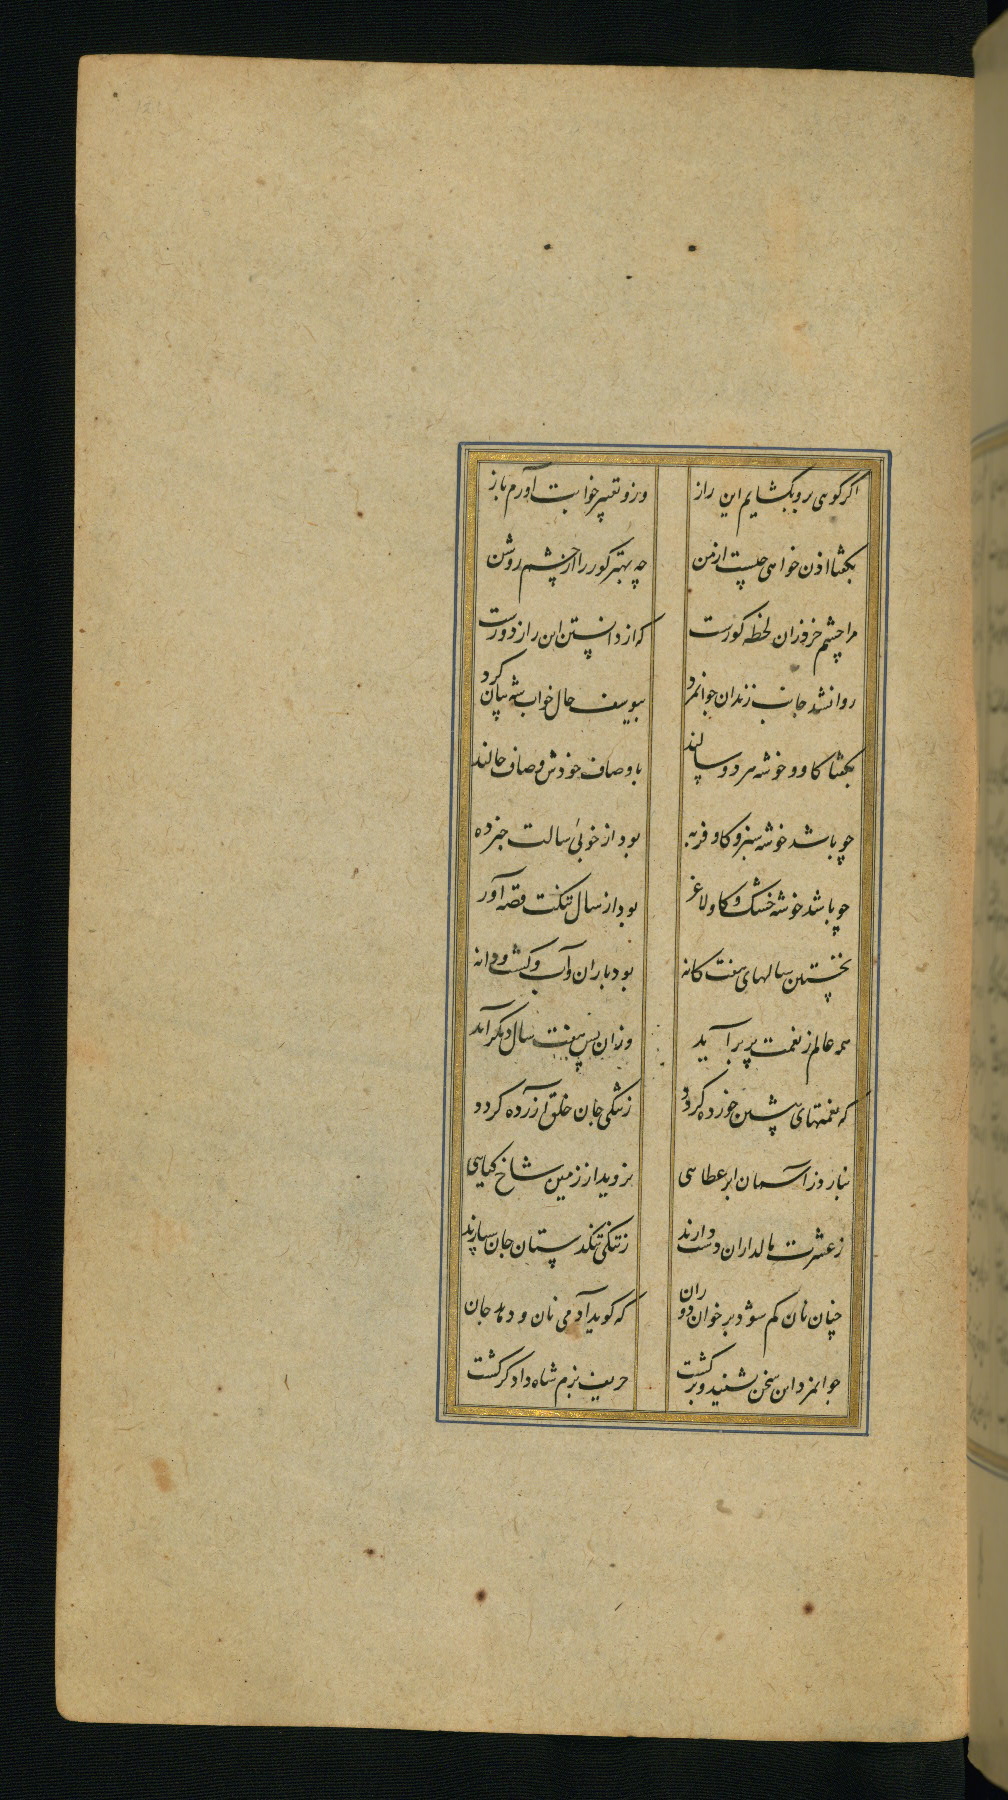 اگر گویی برو بگشایم این راز وزو تعبیر خوابت آورم باز
بگفتا اذن خواهی چیست از من چه بهتر کور را از چشم روشن
مرا چشم خرد زان لحظه کورست که از دانستن این راز دورست
روان شد جانب زندان جوانمرد بیوسف حال خواب شه بیان کرد
بگفتا گاو و خوشه هر دو سالند باوصاف خودش وصاف حالند
چو باشد خوشه سبز و گاو فربه بود از خوبی سالت خبر ده
چو باشد خوشه خشک و گاو لاغر بود از سال تنگت قصه آور
نخستین سالهای هفت گانه بود باران و آب و کشت و دانه
همه عالم ز نعمت پر برآید وزان پس هفت سال دیگر آید
که نعمتهای پیشین خورده گردد ز تنگی جان خلق آزرده گردد
نبارد ز آسمان ابر عطایی نروید از زمین شاخ گیاهی
ز عشرت مالداران دست دارند ز تنگی تنگدستان جان سپارند
چنان نان کم شود بر خوان دوران که گوید آدمی نان و دهد جان
جوانمرد این سخن بشنید و برگشت حریف بزم شاه دادگر گشت